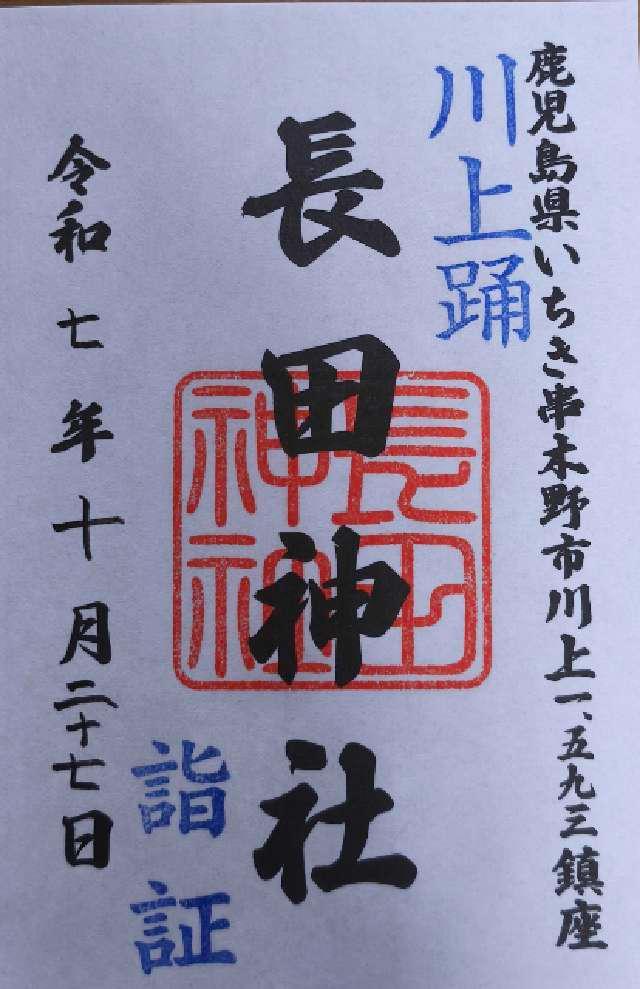 鹿児島県いちき串木野市川上一、五九三鎮座
川上踊
長田神社
長田
神社
詣証
令和七年十月二十七日